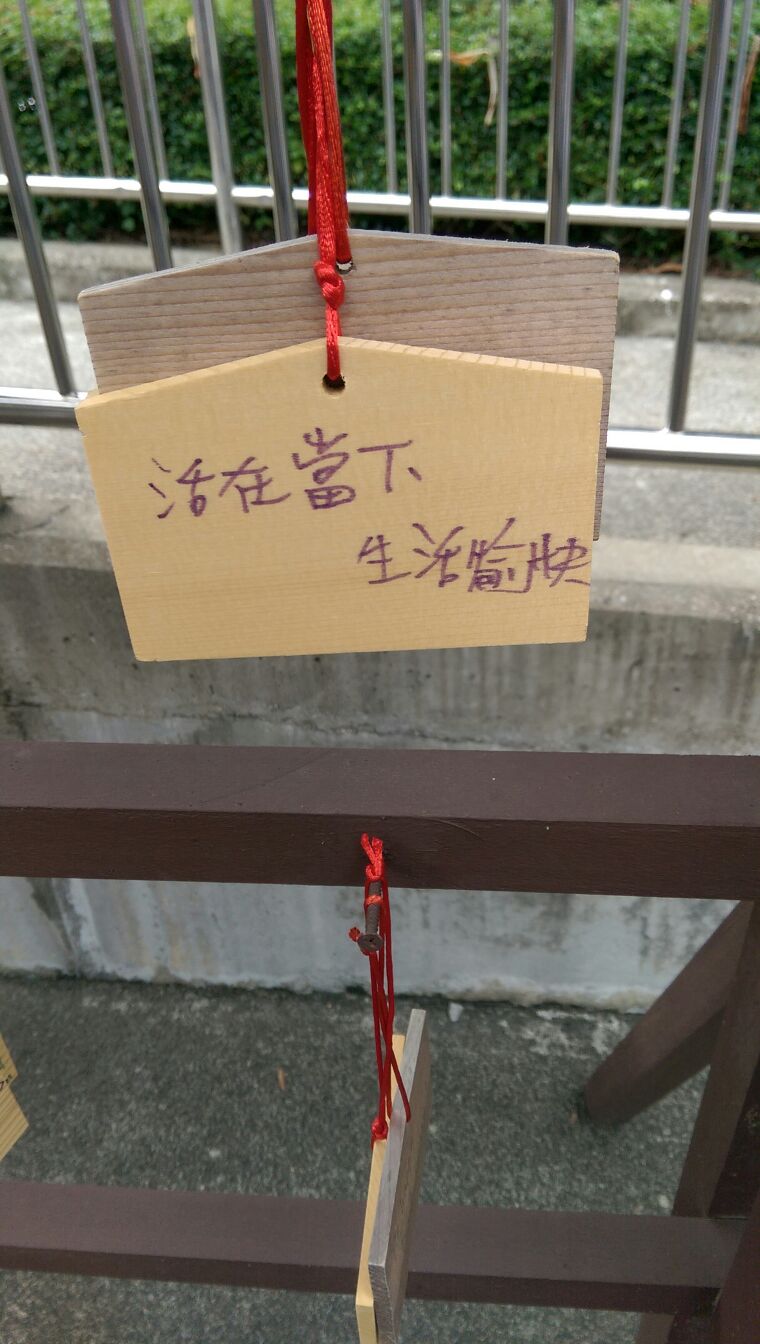 活在當下
生活愉快